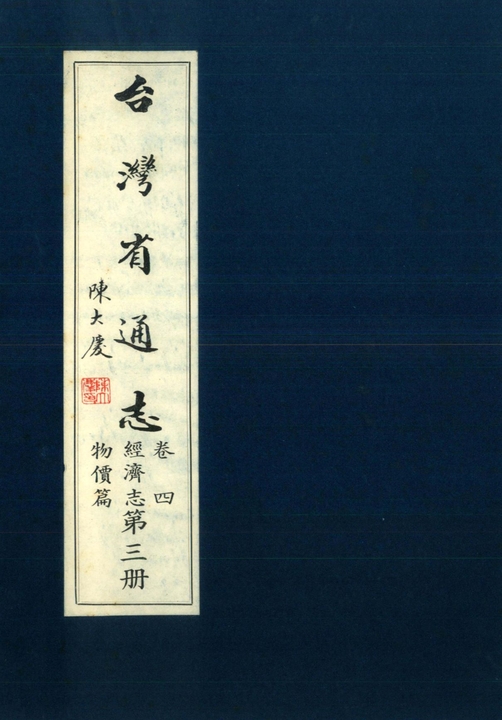 台灣省通志
卷四
經濟志
物價篇
第三册
陳大慶